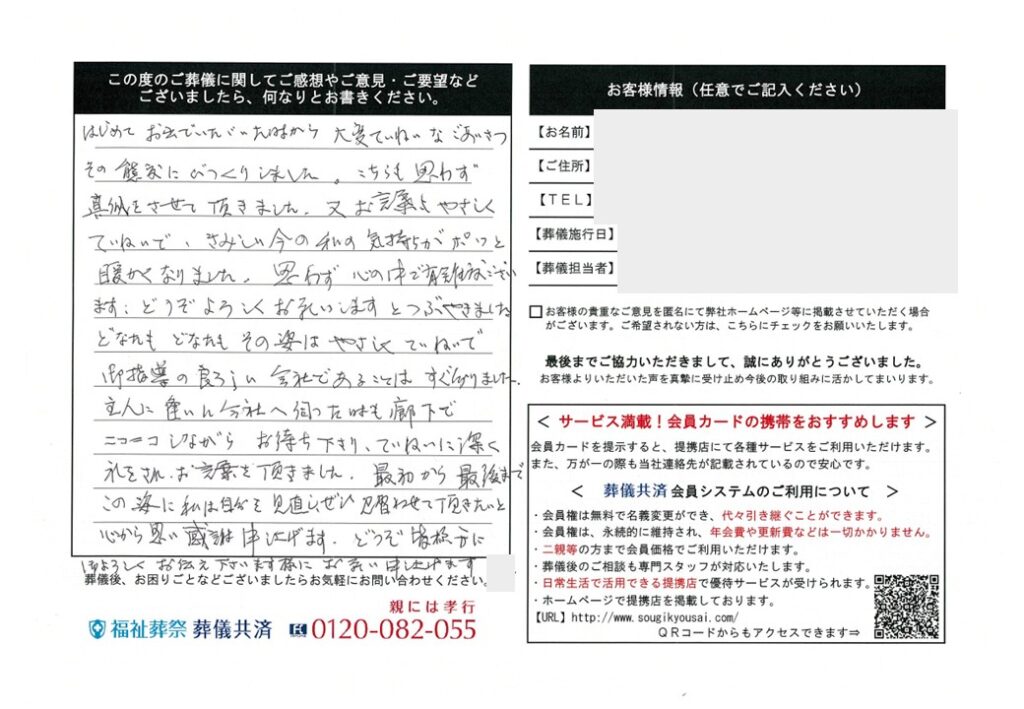 この度のご葬儀に関してご感想やご意見・ご要望など
ございましたら、何なりとお書きください。
はじめて お会いていただいた時から 大変ていねいなごあいさつ
その態度にびっくりしました。こちらも思わず
真似をさせて頂きました。又お言葉もやさしく
ていねいで、さみしい今の私の気持ちがポッと
暖かくなりました。思わず心の中で有難うござい
ます:どうぞよろしくお願いしますとつぶやきました
どなたも どなたも その姿は やさしく ていねいで
御指導の良ろしい 会社であることは すぐ分りました。
主人に 会社へ伺った時も廊下で
ニコニコしながら お待ち下さり、ていねいに深く
礼をされ、お言葉を頂きました。最初から最後まで
この姿に私は自分を見直しぜひ見習わせて頂きたいと
心から思い感謝申上げます。どうぞ皆様方に
よろしくお伝え下さいます様にお願い申し上げます
葬儀後、お困りごとなどございましたらお気軽にお問い合わせください。
親には孝行
福祉葬祭 葬儀共済 0120-082-055
お客様情報(任意でご記入ください)
【お名前】
【ご住所】
【TEL】
【葬儀施行日】
【葬儀担当者】
□お客様の貴重なご意見を匿名にて弊社ホームページ等に掲載させていただく場合
がございます。ご希望されない方は、こちらにチェックをお願いいたします。
最後までご協力いただきまして、誠にありがとうございました。
お客様よりいただいた声を真摯に受け止め今後の取り組みに活かしてまいります。
＜ サービス満載！会員カードの携帯をおすすめします ＞
会員カードを提示すると、提携店にて各種サービスをご利用いただけます。
また、万が一の際も当社連絡先が記載されているので安心です。
＜ 葬儀共済 会員システムのご利用について ＞
・会員権は無料で名義変更ができ、代々引き継ぐことができます。
・会員権は、永続的に維持され、年会費や更新費などは一切かかりません。
・二親等の方まで会員価格でご利用いただけます。
・葬儀後のご相談も専門スタッフが対応いたします。
・日常生活で活用できる提携店で優待サービスが受けられます。
・ホームページで提携店を掲載しております。
【URL】http://www.sougikyousai.com/
QRコードからもアクセスできます⇒